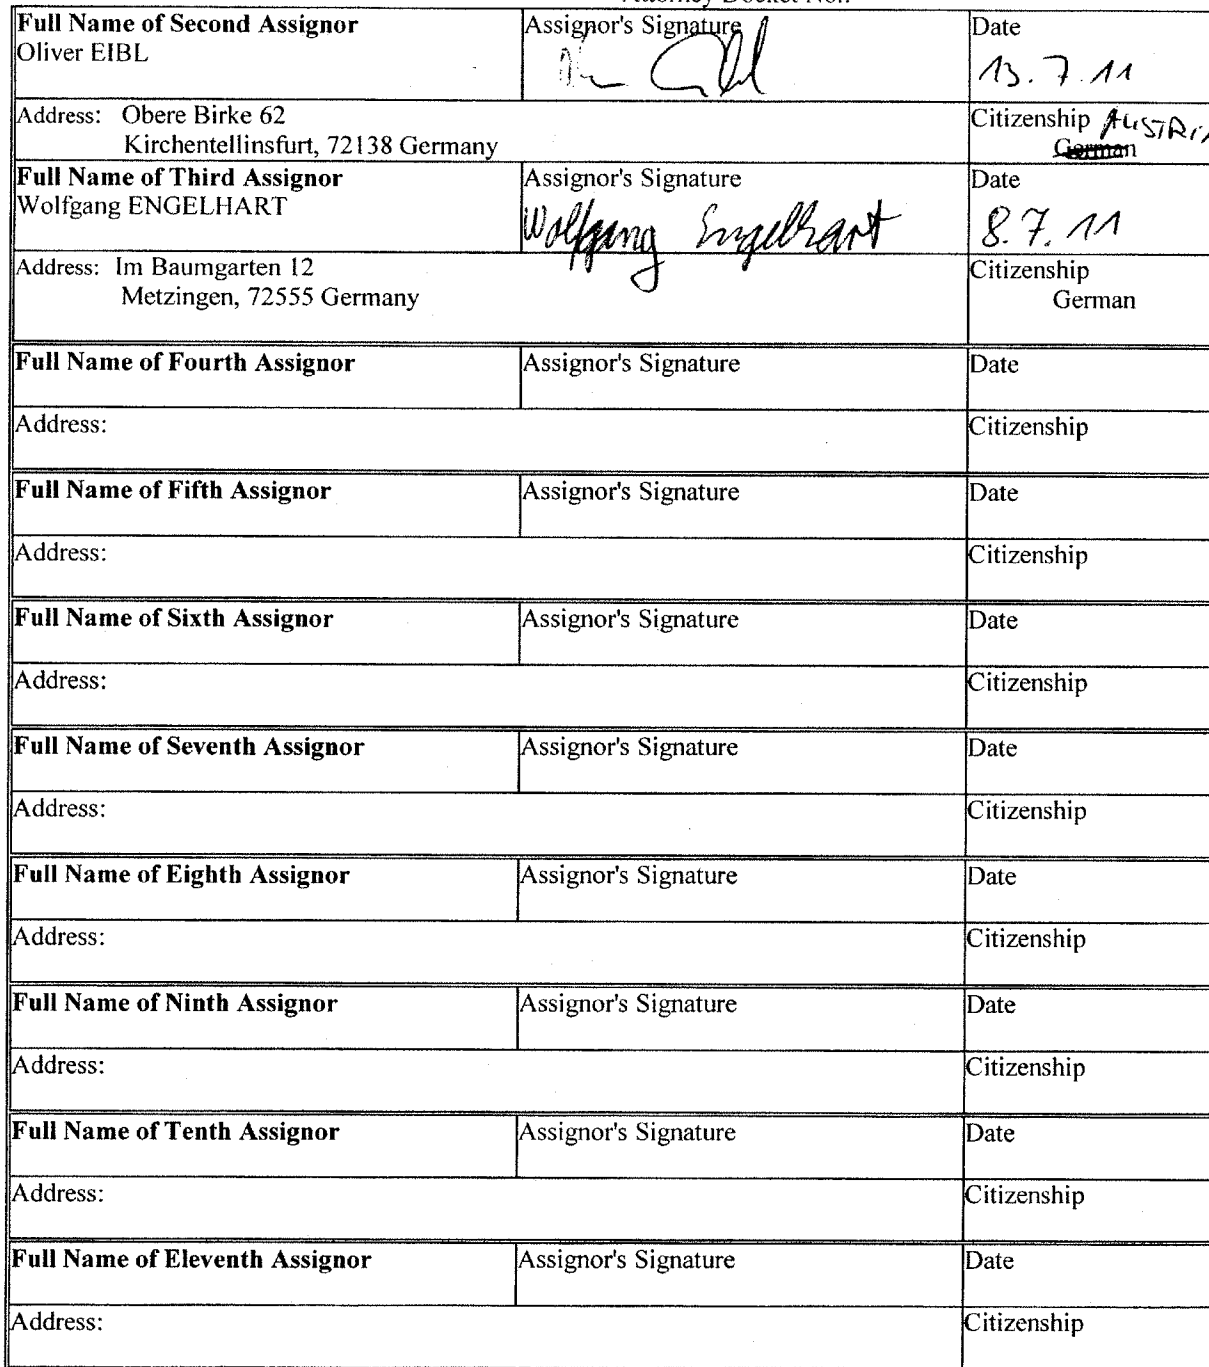 Attorney Docket No.:
Full Name of Second Assignor
Oliver EIBL
Assignor's Signature
Date
13.7.11
Address: Obere Birke 62
Kirchentellinsfurt, 72138 Germany
Citizenship AUSTRIA
German
Full Name of Third Assignor
Wolfgang ENGELHART
Assignor's Signature
Wolfgang Engelhart
Date
8.7.11
Address: Im Baumgarten 12
Metzingen, 72555 Germany
Citizenship
German
Full Name of Fourth Assignor
Assignor's Signature
Date
Address:
Citizenship
Full Name of Fifth Assignor
Assignor's Signature
Date
Address:
Citizenship
Full Name of Sixth Assignor
Assignor's Signature
Date
Address:
Citizenship
Full Name of Seventh Assignor
Assignor's Signature
Date
Address:
Citizenship
Full Name of Eighth Assignor
Assignor's Signature
Date
Address:
Citizenship
Full Name of Ninth Assignor
Assignor's Signature
Date
Address:
Citizenship
Full Name of Tenth Assignor
Assignor's Signature
Date
Address:
Citizenship
Full Name of Eleventh Assignor
Assignor's Signature
Date
Address:
Citizenship